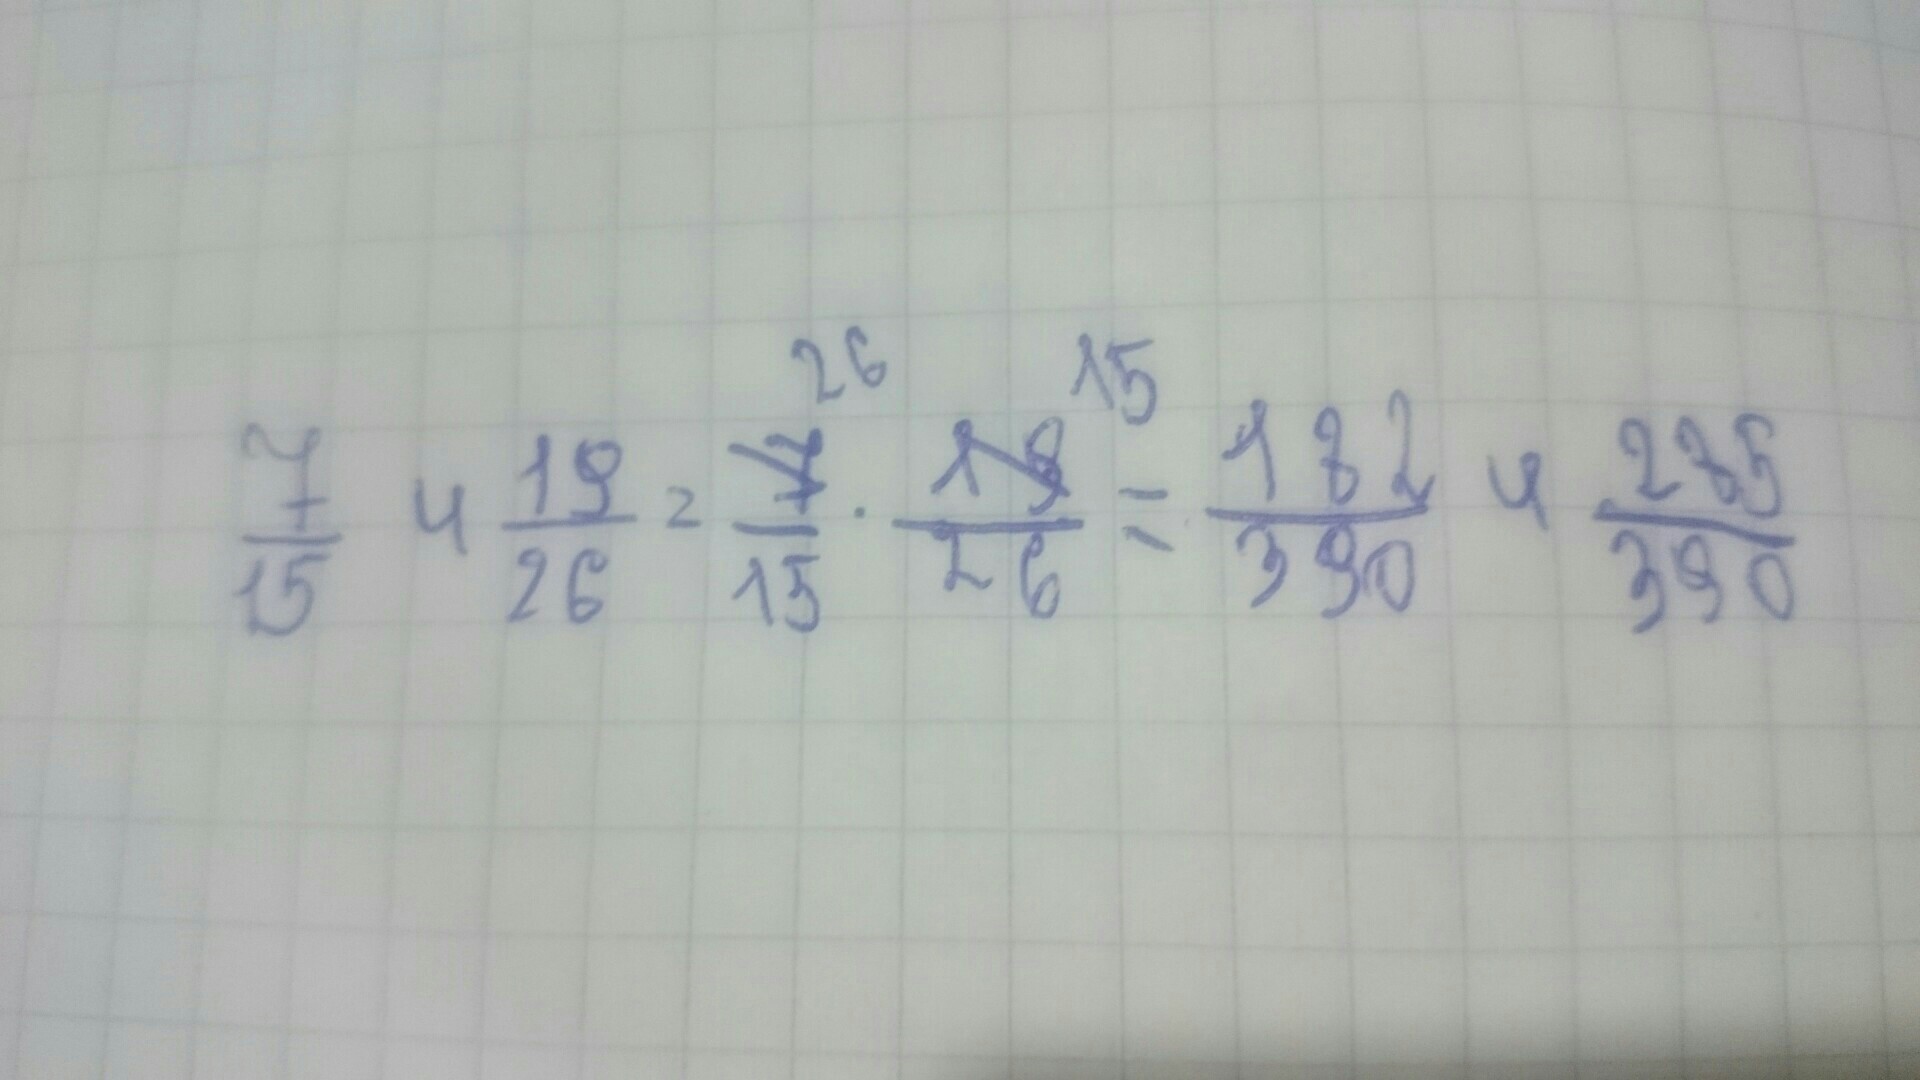 7/15 и 19/26 = 7/15 26 · 19/26 15 = 182/390 и 285/390